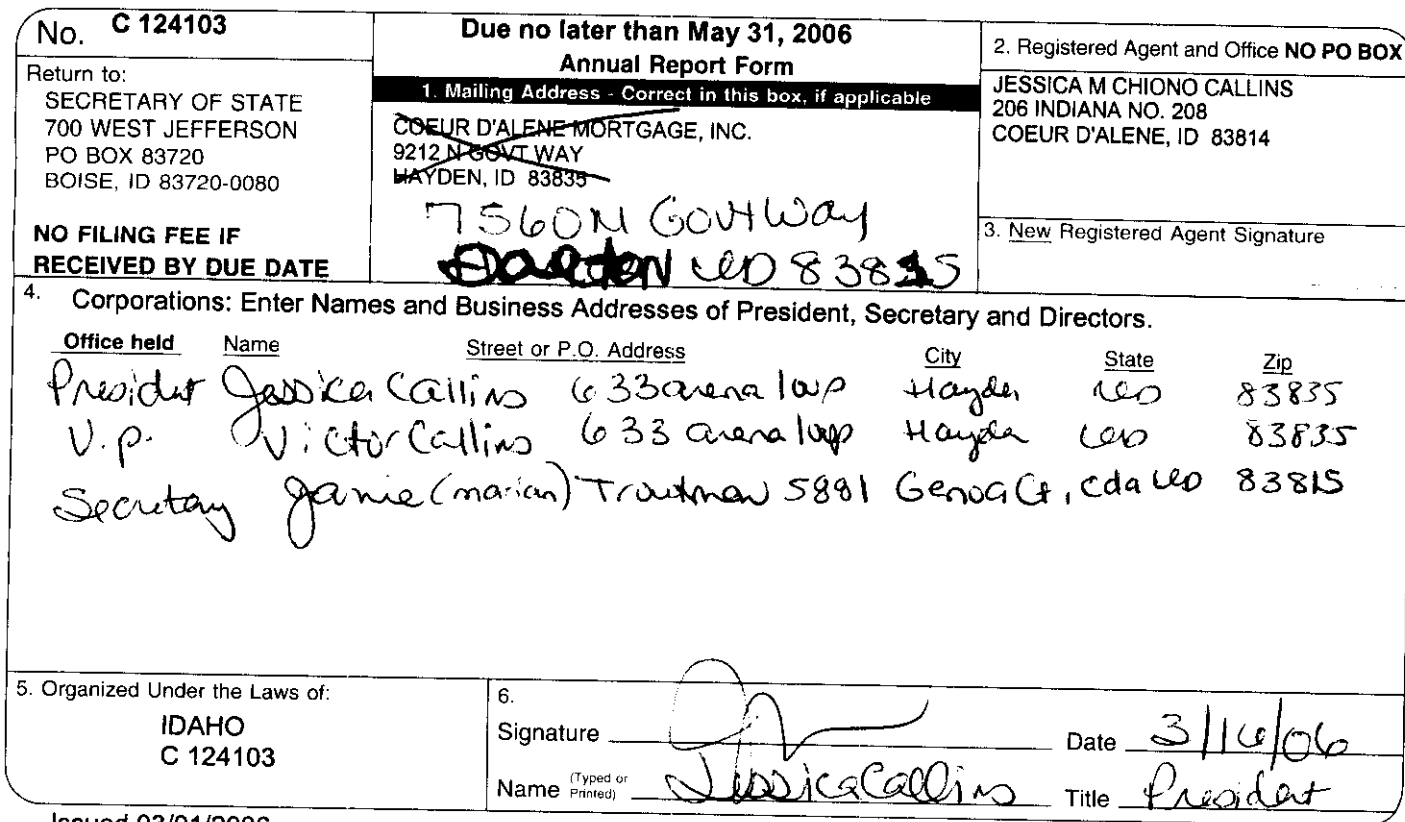 No. C 124103
Return to:
SECRETARY OF STATE
700 WEST JEFFERSON
PO BOX 83720
BOISE, ID 83720-0080
NO FILING FEE IF
RECEIVED BY DUE DATE
Due no later than May 31, 2006
Annual Report Form
1. Mailing Address - Correct in this box, if applicable
COEUR D'ALENE MORTGAGE, INC.
9212 N GOVT WAY
HAYDEN, ID 83835
7560 N Govt Way
83815
2. Registered Agent and Office NO PO BOX
JESSICA M CHIONO CALLINS
206 INDIANA NO. 208
COEUR D'ALENE, ID 83814
3. New Registered Agent Signature
4. Corporations: Enter Names and Business Addresses of President, Secretary and Directors.
Office held Name Street or P.O. Address City State Zip
President Jessica Callins 633 arena loop Hayden ID 83835
V.p. Victor Callins 633 arena loop Hayden ID 83835
Secretary Janie (marian) Troutman 5881 Genoa Ct, cda ID 83815
5. Organized Under the Laws of:
IDAHO
C 124103
6.
Signature Date 3/16/06
Name (Typed or Printed) Jessica Callins Title President
Issued 03/01/2006